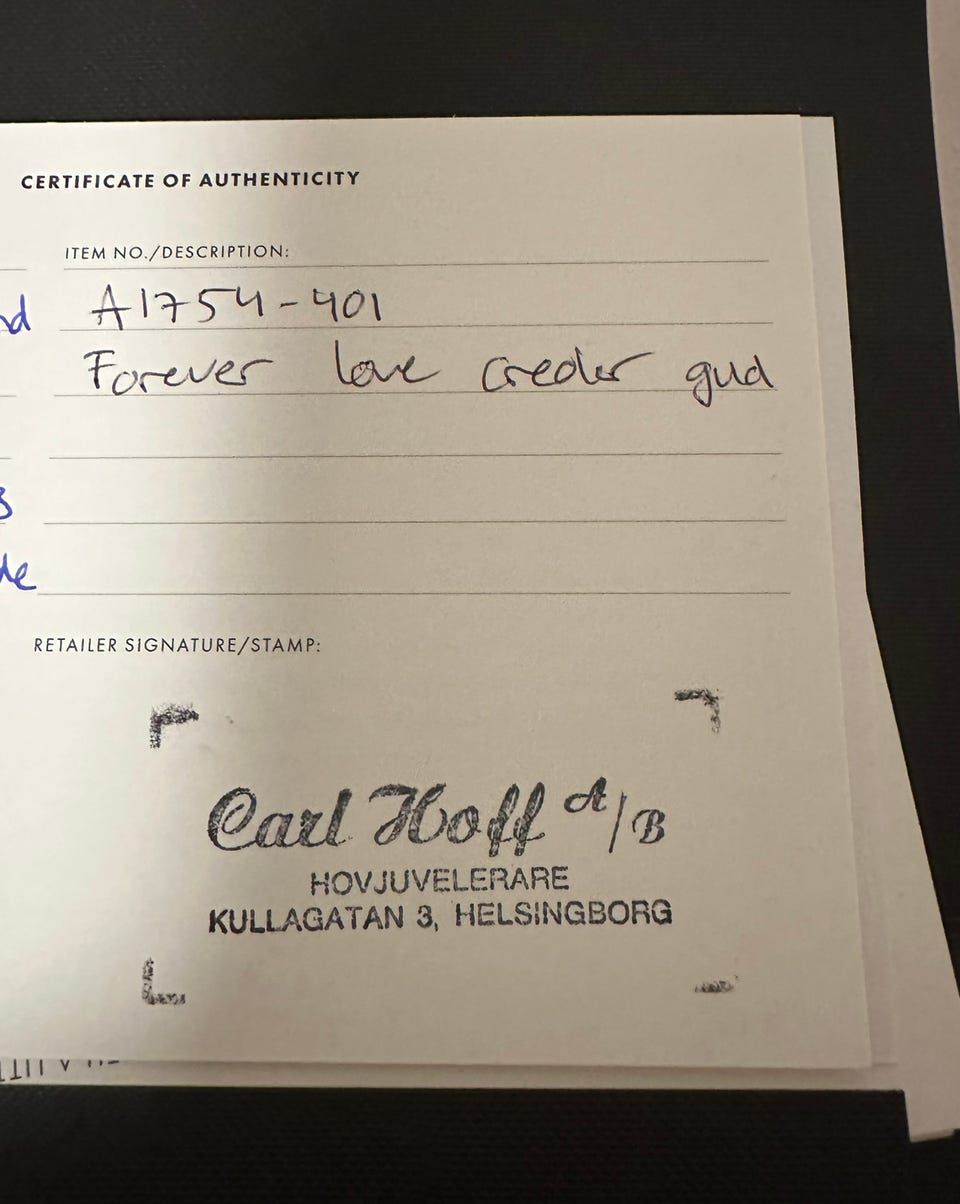 CERTIFICATE OF AUTHENTICITY
ITEM NO./DESCRIPTION:
A1754-401
Forever love creoler guld
RETAILER SIGNATURE/STAMP:
Carl Hoff A/B
HOVJUVELERARE
KULLAGATAN 3, HELSINGBORG